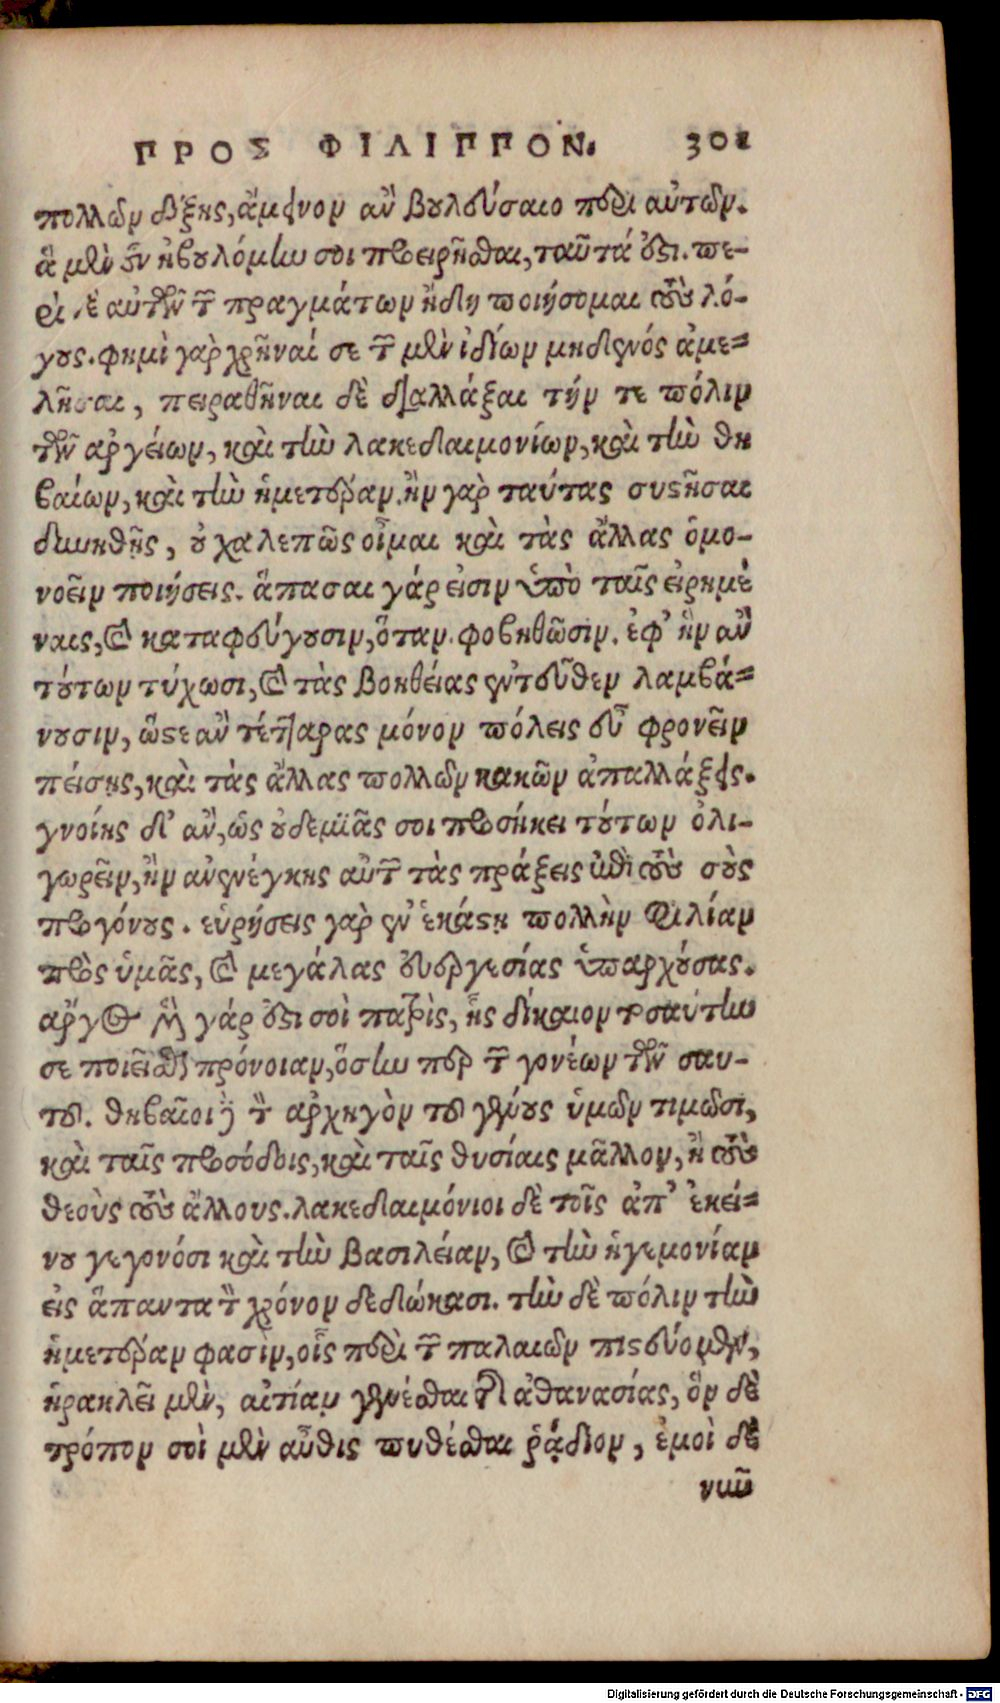 ΠΡΟΣ ΦΙΛΙΠΠΟΝ. 301
πολλῶν δόξῃς, ἄμεινον ἂν βουλεύσαιο περὶ αὐτῶν.
ἃ μὲν οὖν ἠβουλόμην σοι προειρῆσθαι, ταῦτά ἐστι. πε-
ρὶ δ' αὐτῶν τῶν πραγμάτων ἤδη ποιήσομαι τοὺς λό-
γους. φημὶ γὰρ χρῆναί σε τῶν μὲν ἰδίων μηδενός ἀμε-
λῆσαι, πειραθῆναι δὲ διαλλάξαι τήν τε πόλιν
τῶν ἀργείων, καὶ τὴν λακεδαιμονίων, καὶ τὴν θη
βαίων, καὶ τὴν ἡμετέραν. ἢν γὰρ ταύτας συστῆσαι
δυνηθῇς, οὐ χαλεπῶς οἶμαι καὶ τὰς ἄλλας ὁμο-
νοεῖν ποιήσεις. ἅπασαι γάρ εἰσιν ὑπὸ ταῖς εἰρημέ
ναις, καὶ καταφεύγουσιν, ὅταν φοβηθῶσιν, ἐφ' ἣν ἂν
τούτων τύχωσι, καὶ τὰς βοηθείας ἐντεῦθεν λαμβά-
νουσιν, ὥστε ἂν τέτταρας μόνον πόλεις εὖ φρονεῖν
πείσῃς, καὶ τὰς ἄλλας πολλῶν κακῶν ἀπαλλάξεις.
γνοίης δ' ἂν, ὡς οὐδεμιᾶς σοι προσήκει τούτων ὀλι-
γωρεῖν, ἢν ἀνενέγκῃς αὐτῶν τὰς πράξεις ἐπὶ τοὺς σοὺς
προγόνους. εὑρήσεις γὰρ ἐν ἑκάστῃ πολλὴν φιλίαν
πρὸς ὑμᾶς, καὶ μεγάλας εὐεργεσίας ὑπαρχούσας.
ἄργος μὲν γάρ ἐστι σοὶ πατρὶς, ἧς δίκαιον τοσαύτην
σε ποιεῖσθαι πρόνοιαν, ὅσην περ τῶν γονέων τῶν σαυ-
τοῦ. θηβαῖοι δὲ τὸν ἀρχηγὸν τοῦ γένους ὑμῶν τιμῶσι,
καὶ ταῖς προσόδοις, καὶ ταῖς θυσίαις μᾶλλον, ἢ τοὺς
θεοὺς τοὺς ἄλλους. λακεδαιμόνιοι δὲ τοῖς ἀπ' ἐκεί-
νου γεγονόσι καὶ τὴν βασιλείαν, καὶ τὴν ἡγεμονίαν
εἰς ἅπαντα τὸν χρόνον δεδώκασι. τὴν δὲ πόλιν τὴν
ἡμετέραν φασὶν, οἷς περὶ τῶν παλαιῶν πιστεύομεν,
ἡρακλεῖ μὲν, αἰτίαν γενέσθαι τῆς ἀθανασίας, ὃν δὲ
τρόπον σοὶ μὲν αὖθις πυθέσθαι ῥᾴδιον, ἐμοὶ δὲ
νῦν
Digitalisierung gefördert durch die Deutsche Forschungsgemeinschaft - DFG